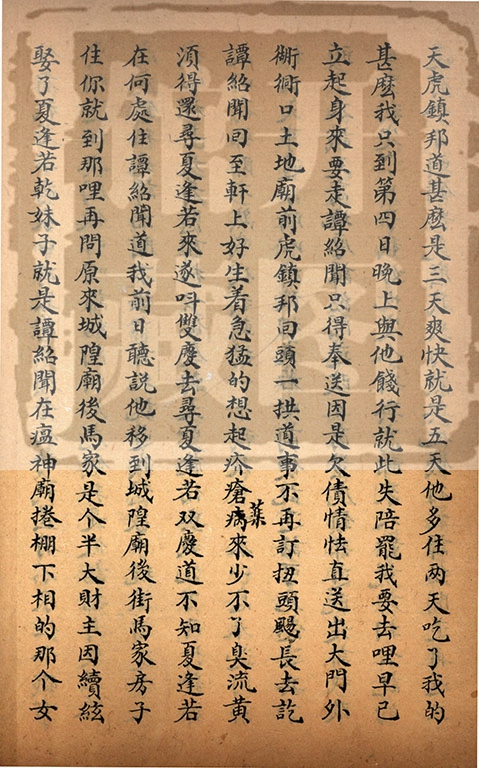 天虎鎮邦道甚麽是三天爽快就是五天他多住两天吃了我的
甚麽我只到第四日晚上與他餞行就此失陪罷我要去哩早已
立起身來要走譚紹聞只得奉送因是欠債情怯直送出大門外
衚衕口土地廟前虎鎮邦回頭一拱道事不再訂扭頭颺長去訖
譚紹聞回至軒上好生着急猛的想起疥瘡葯來少不了臭流黄
須得還尋夏逢若來遂呌雙慶去尋夏逢若双慶道不知夏逢若
在何處住譚紹聞道我前日聽説他移到城隍廟後街馬家房子
住你就到那哩再問原來城隍廟後馬家是个半大財主因續絃
娶了夏逢若乾妹子就是譚紹聞在瘟神廟捲棚下相的那个女